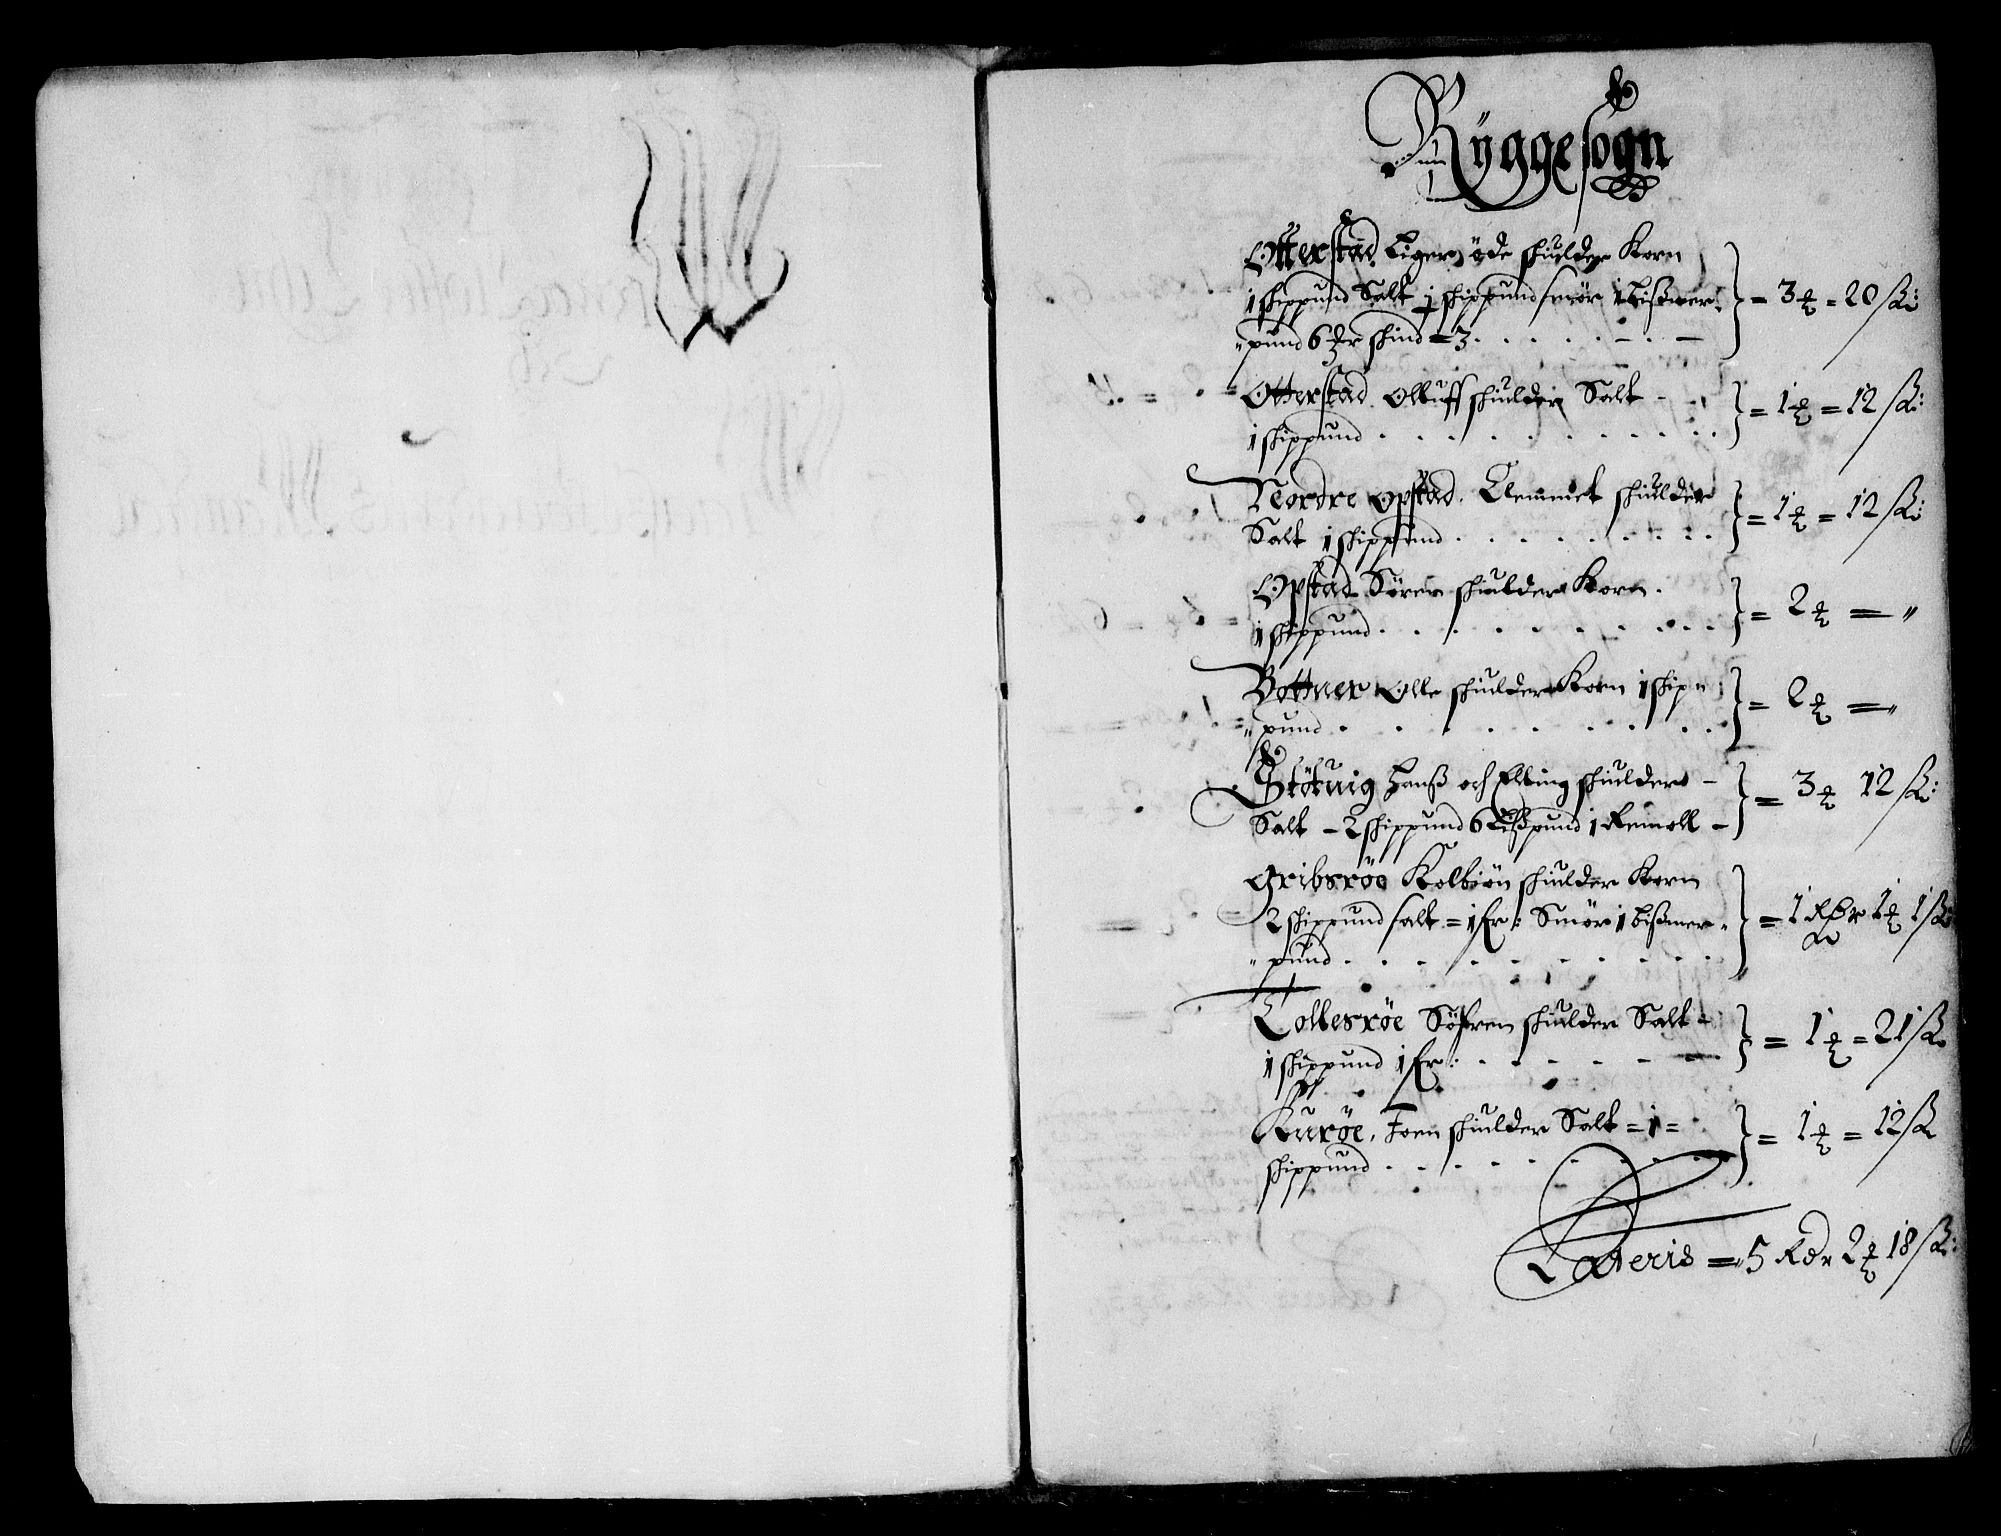 Rÿggesogn
Otterstad Liger øde skulder Korn
1 skippund Salt 1 skippund smør 1 bißmer
pund 6 skind = 3 = 3 = 20 ß:
Otterstad Olluff skulder Salt
1 skippund = 1 = 12 ß:
Nordre Opstad. Clemmet skulder
Salt 1 skippund = 1 = 12 ß:
Opstad Sören skulder Korn.
1 skippund = 2 = "
Bottner Olle skulder Korn 1 skip
" pund = 2 = "
Stötuig Hanß och Elling skulder
Salt – 2 skippund 6 Lißpund 1 Remoll = 3 12 ß:
Gribsröe Kolbiön skulder Korn
2 skippund salt = 1 fr: Smör 1 bißmer
" pund = 1 Rdr 1 1 ß:
Tollesröe Söfren skulder Salt
1 skippund 1 fr: = 1 = 21 ß
Kuröe, Joen skulder Salt = 1 =
skippund = 1 = 12 ß
Lateris = 5 Rdr 2 18 ß: